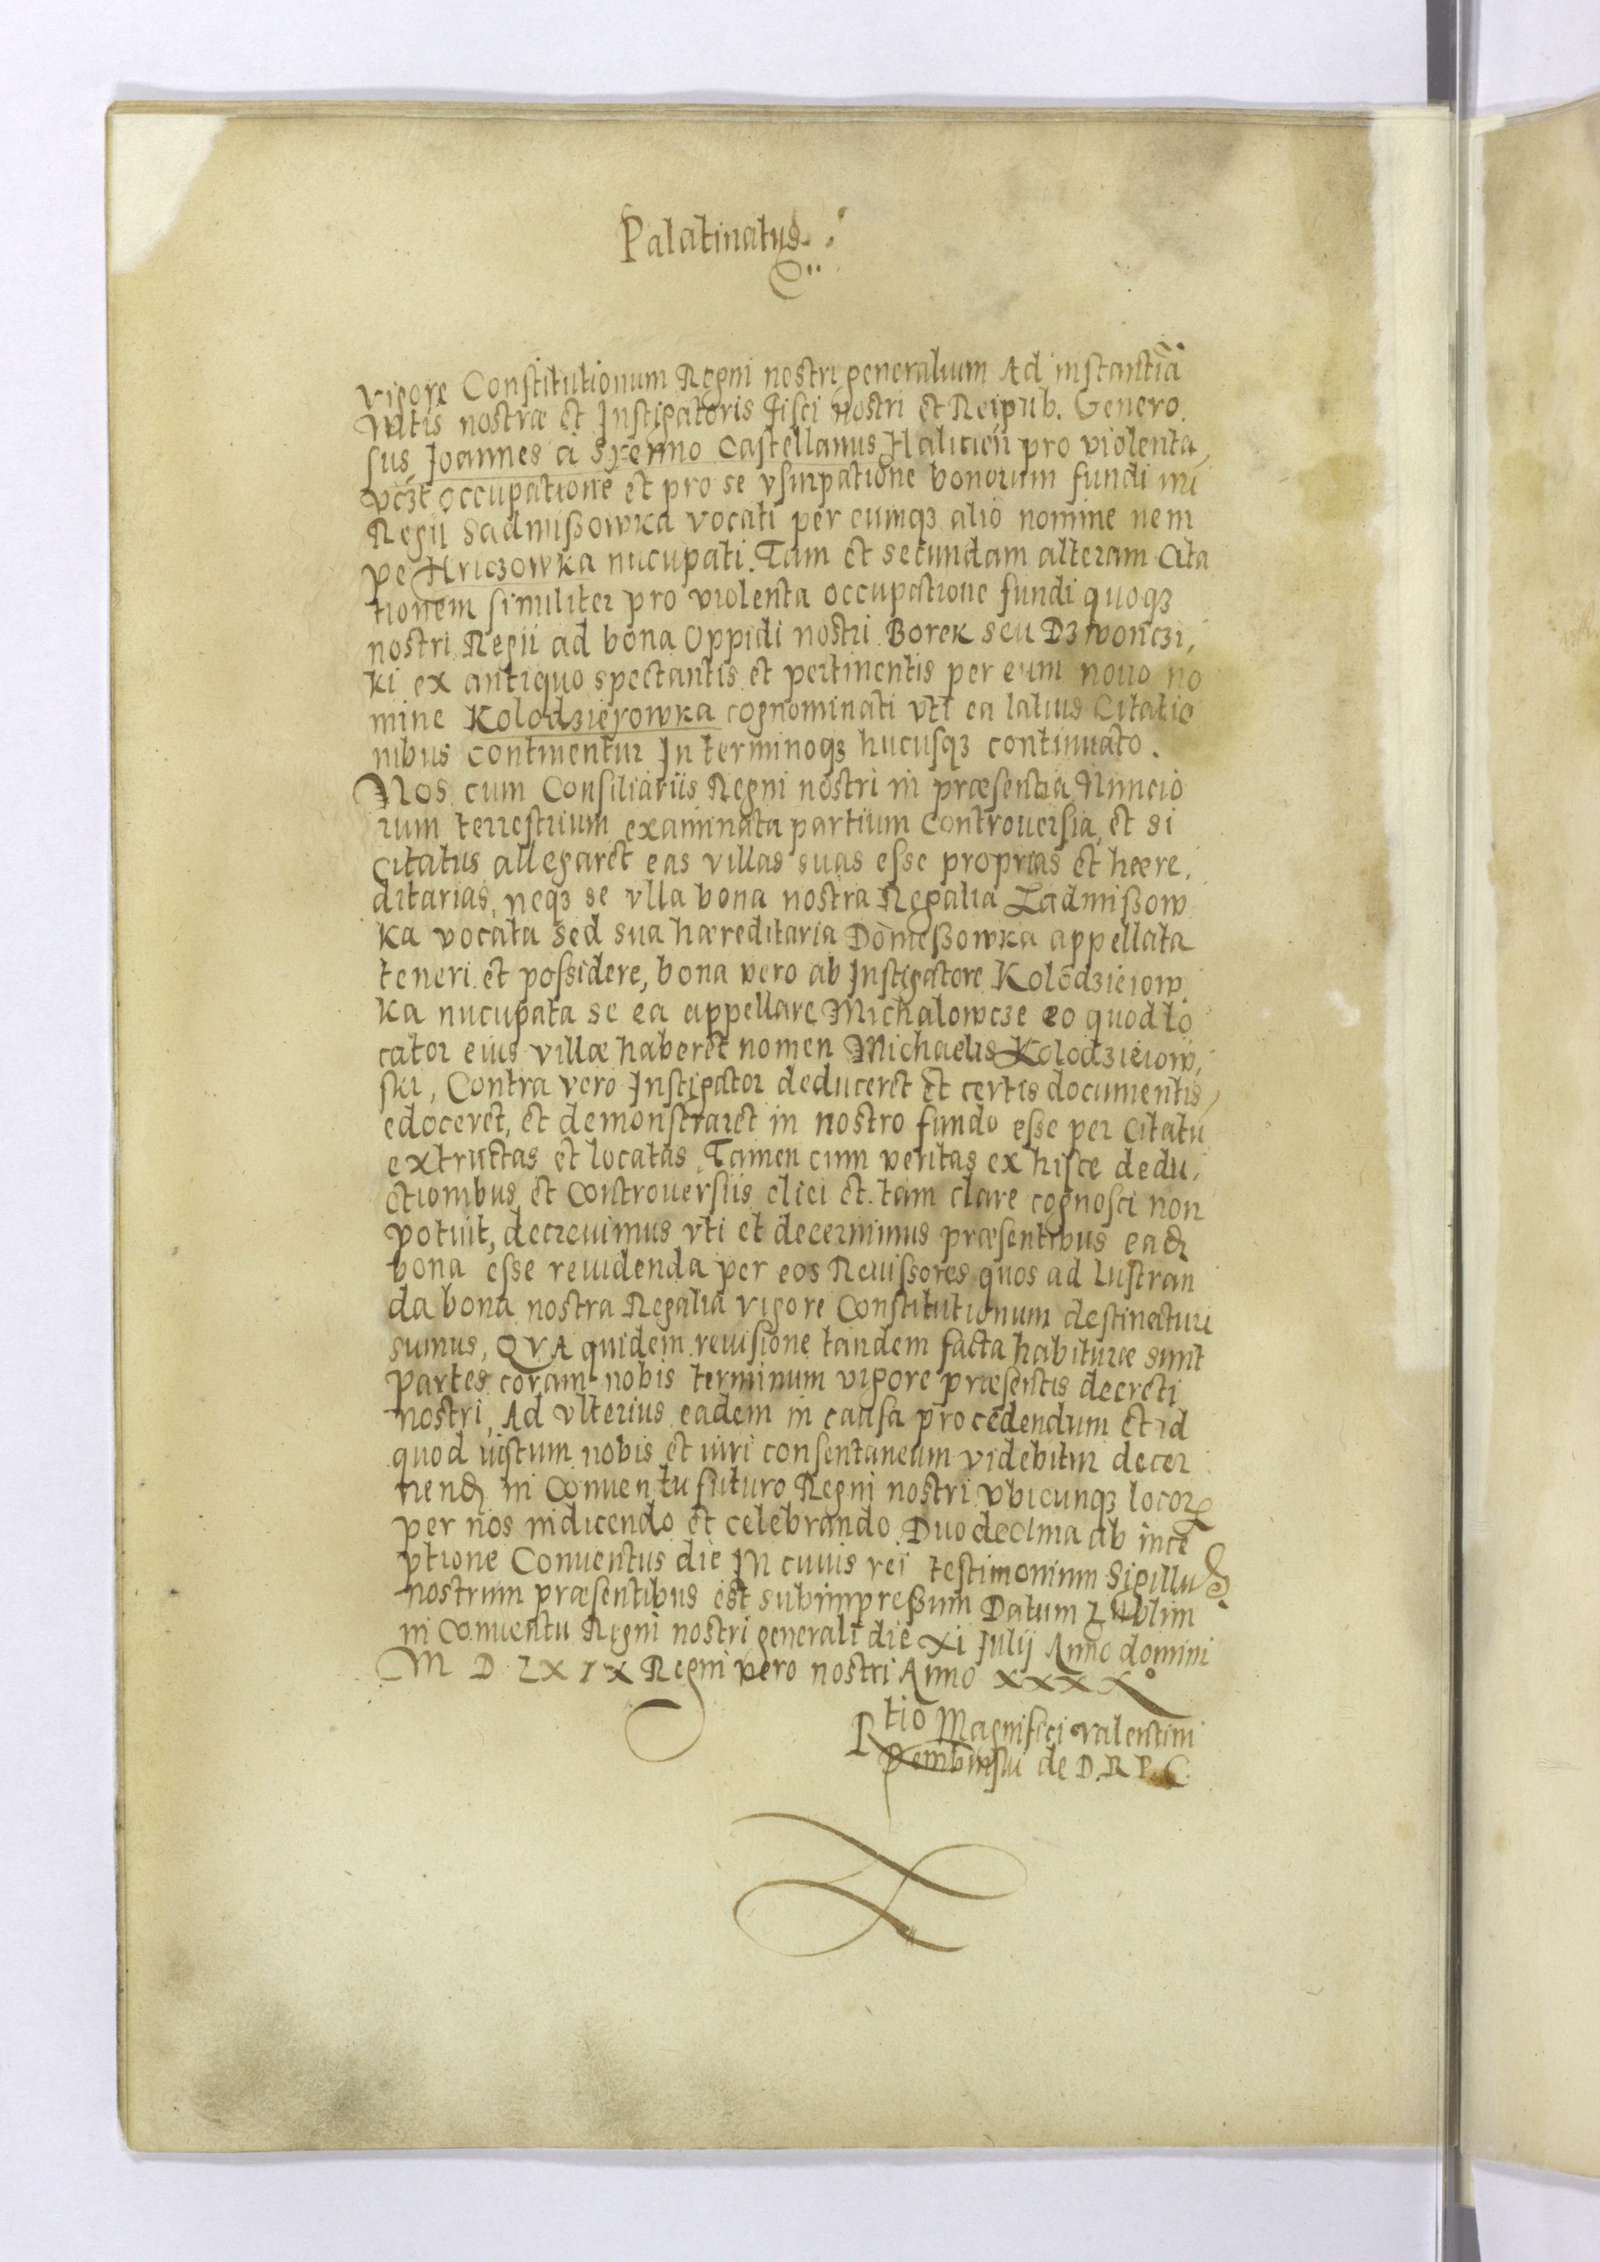 Palatinatus
vigore Constitutionum Regni nostri generalium Ad instantiã
Mttis nostræ et Instigatoris Fisci nostri et Reipub. Genero
sus Joannes à Syenno Castellanus Haliciẽ pro violenta,
vczt occupatione et pro se vsurpatione bonorum fundi nri
Regii Sadmißowka vocati per eumqȝ alio nomine nem
pe Hriczowka nucupati. Tam et secundam alteram Cita
tionem similiter pro violenta occupatione fundi quoqȝ
nostri Regii ad bona Oppidi nostri Borek seu Dzwonczi,
ki ex antiquo spectantis et pertinentis per eum nouo no
mine Kolodzieyowka cognominati vti ea latius Citatio
nibus continentur In terminoqȝ hucusqȝ continuato.
Nos cum Consiliariis Regni nostri in præsentia Nuncio
rum terrestrium examinata partium controuersia et si
citatus allegaret eas villas suas esse proprias et hære,
ditarias, neqȝ se vlla bona nostra Regalia Zadmißow
ka vocata sed sua hæreditaria Domeßowka appellata
teneri et possidere, bona vero ab Instigatore Kolodzieiow
ka nucupata se ea appellare Michalowcze eo quod lo
cator eius villæ haberet nomen Michaelis Kolodzieiow,
ski, Contra vero Instigator deduceret et certis documentis,
edoceret, et demonstraret in nostro fundo esse per Citatu
extructas et locatas, Tamen cum veritas ex hisce dedu,
ctionibus et Controuersiis elici et tam clare cognosci non
potuit, decreuimus vti et decernimus præsentibus ead
bona esse reuidenda per eos Reuissores quos ad lustran
da bona nostra Regalia vigore Constitutionum destinaturi
sumus, QVA quidem reuisione tandem facta habituræ sunt
partes coram nobis terminum vigore præsentis decreti
nostri, Ad vlterius eadem in causa procedendum et id
quod iustum nobis et iuri consentaneum videbitur decer
nend in Conuentu futuro Regni nostri vbicunqȝ locorꝝ
per nos indicendo et celebrando Duodecima ab ince
ptione Conuentus die In cuius rei testimonium Sigillu
nostrum præsentibus est subimpreßum Datum Lublim
in Conuentu Regni nostri generali die XI Julij Anno domini
M D LX IX Regni vero nostri Anno XXXX°
Rtio Magnifici Valentini
Dembinski de D. R P. C.